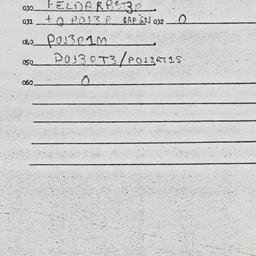 030 FELDARBST3P
031 +Q POJ3P OAP GNJ 032 0
040 POJ3P1M
050 POJ3OT3/POJ3RT15
060 0